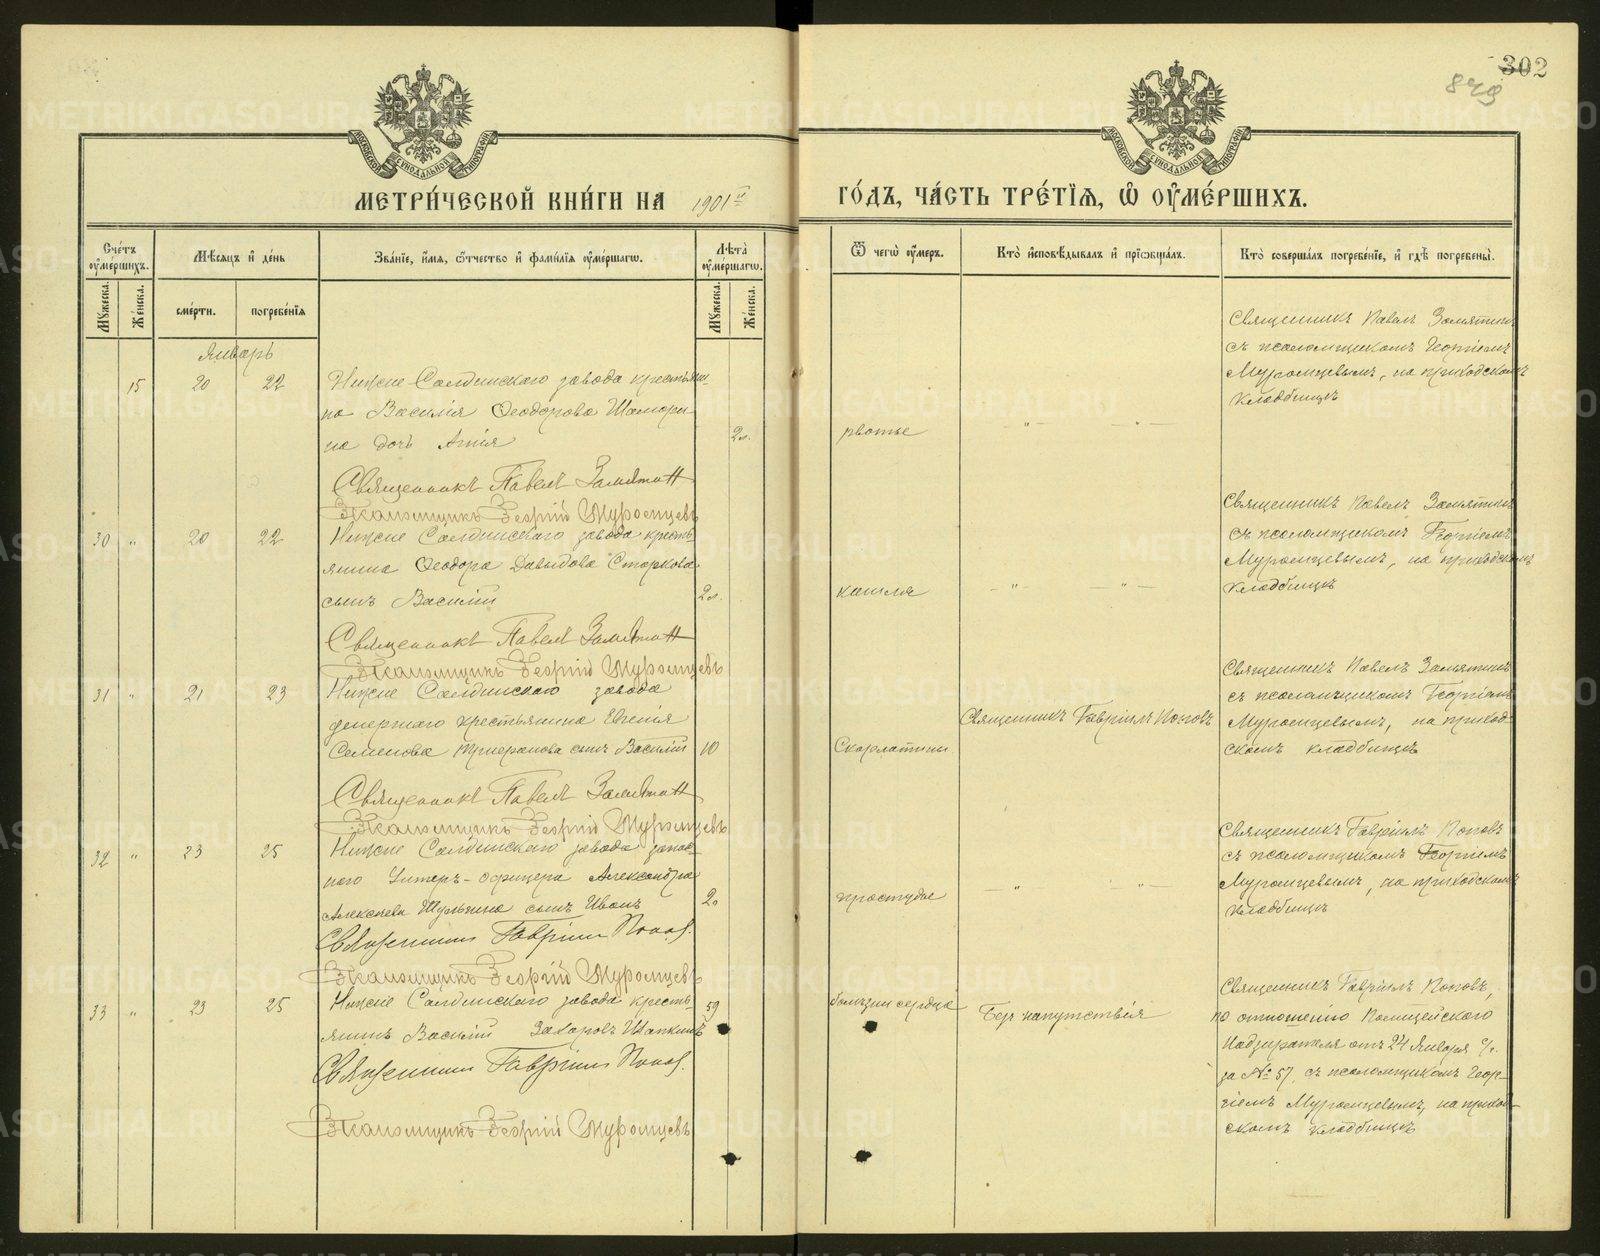 302
849
МОСКОВСКОЙ СѴНОДАЛЬНОЙ ТИПОГРАФІИ
МОСКОВСКОЙ СѴНОДАЛЬНОЙ ТИПОГРАФІИ
МЕТРИ́ЧЕСКОЙ КНИ́ГИ НА 1901й ГО́ДЪ, ЧА́СТЬ ТРЕ́ТІѦ, Ѽ ОУ҆МЕ́РШИХЪ.
Сче́тъ оу҆ме́ршихъ.
Мѣ́сяцъ и҆ де́нь
Зва́ніе, и҆́мя, ѻ҆́тчество и҆ фами́лія оу҆ме́ршагѡ.
Лѣ́та оу҆ме́ршагѡ.
Ѿ чегѡ̀ оу҆́меръ.
Кто̀ и҆сповѣ́дывалъ и҆ прїѡбща́лъ.
Кто̀ соверша́лъ погребе́ніе, и҆ гдѣ̀ погребены̀.
Мꙋ́жеска.
Же́нска.
сме́рти.
погребе́нія
Мꙋ́жеска.
Же́нска.
Январь
15 20 22
Нижне Салдинскаго завода крестьяни-
на Василія Ѳеодорова Шамори-
на дочь
2л.
рвоты
Священникъ Павелъ Замятинъ
съ псаломщикомъ Георгіемъ
Муромцевымъ, на приходскомъ
кладбищѣ
Священникъ Павелъ Замятин
Псаломщикъ Георгій Муромцевъ
30 " 20 22
Нижне Салдинскаго завода кресть-
янина Ѳеодора Давыдова Старкова
сынъ Василій
2л.
кашля
Священникъ Павелъ Замятинъ
съ псаломщикомъ Георгіемъ
Муромцевымъ, на приходскомъ
кладбищѣ
Священникъ Павелъ Замятин
Псаломщикъ Георгій Муромцевъ
31 " 21 23
Нижне Салдинскаго завода
крестьянина Евгенія
Семенова сынъ Василій
10
Скарлатины
Священникъ Гавріилъ Поповъ
Священникъ Павелъ Замятинъ
съ псаломщикомъ Георгіемъ
Муромцевымъ, на приход-
скомъ кладбищѣ
Священникъ Павелъ Замятин
Псаломщикъ Георгій Муромцевъ
32 " 23 25
Нижне Салдинскаго завода запас-
наго Унтеръ-офицера Александра
Алексѣева Шульгина сынъ Иванъ
2
простуды
Священникъ Гавріилъ Поповъ
съ псаломщикомъ Георгіемъ
Муромцевымъ, на приходскомъ
кладбищѣ
Священникъ Гавріилъ Попов.
Псаломщикъ Георгій Муромцевъ
33 " 23 25
Нижне Салдинскаго завода кресть-
янинъ Василій Захаровъ Шапкинъ
59
болѣзни сердца
Безъ напутствія
Священникъ Гавріилъ Поповъ,
по отношенію Полицейскаго
Надзирателя отъ 24 Января с/г.
за № 57, съ псаломщикомъ Геор-
гіемъ Муромцевымъ, на приход-
скомъ кладбищѣ
Священникъ Гавріилъ Попов.
Псаломщикъ Георгій Муромцевъ
METRIKI.GASO-URAL.RU